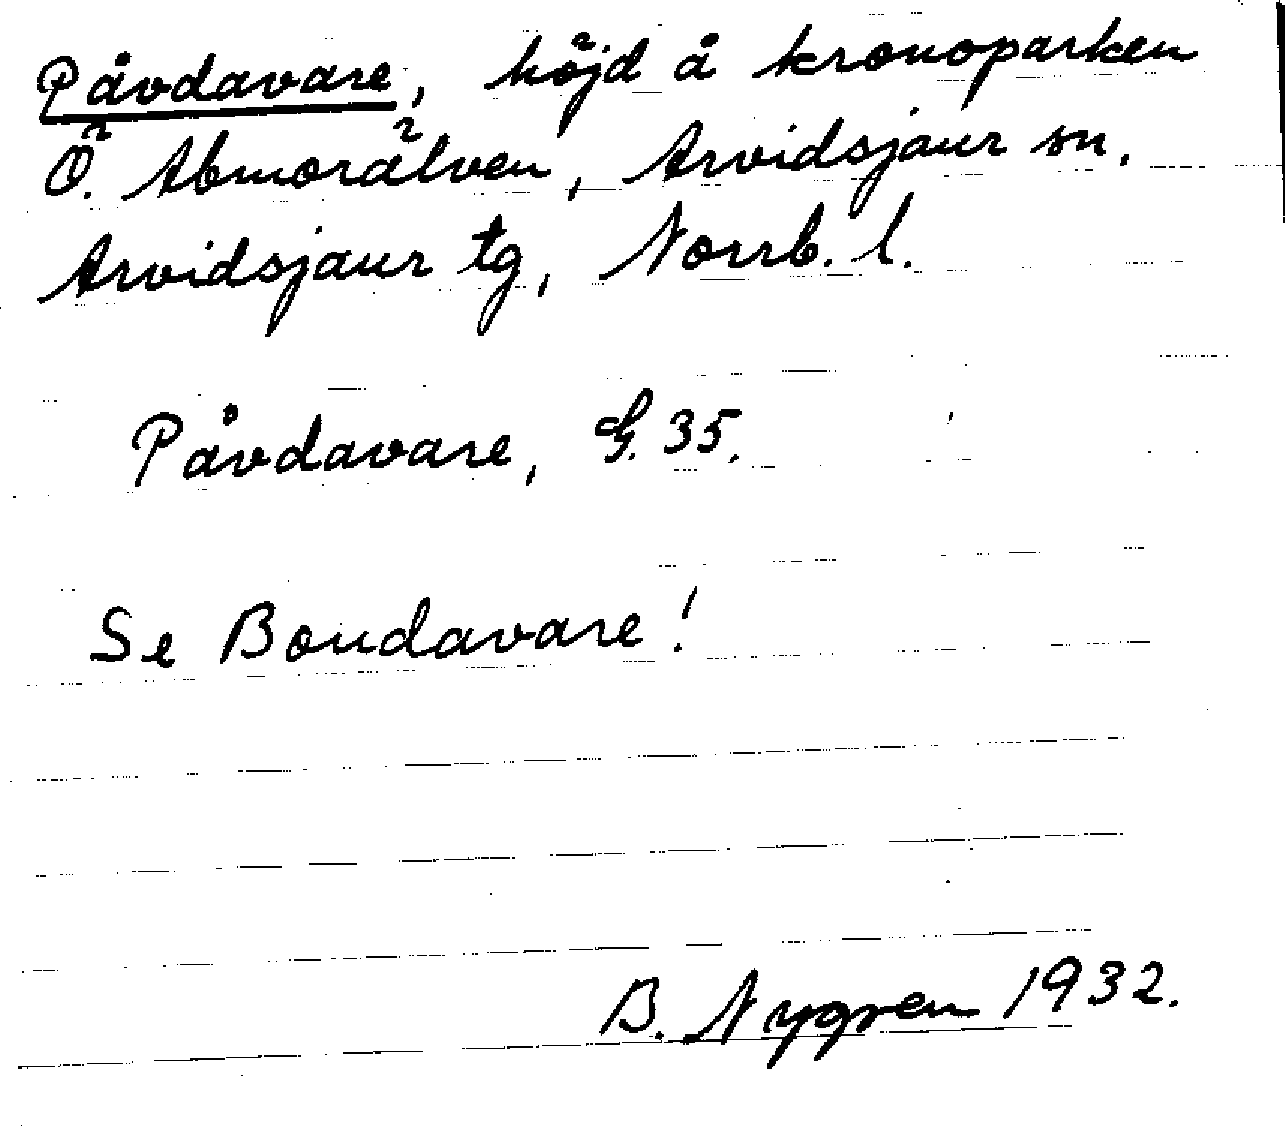 Påvdavare, höjd å kronoparken
Ö. Abmorälven, Arvidsjaur sn,
Arvidsjaur tg, Norrb. l.
Påvdavare, G. 35.
Se Boudavare!
B. Nygren 1932.